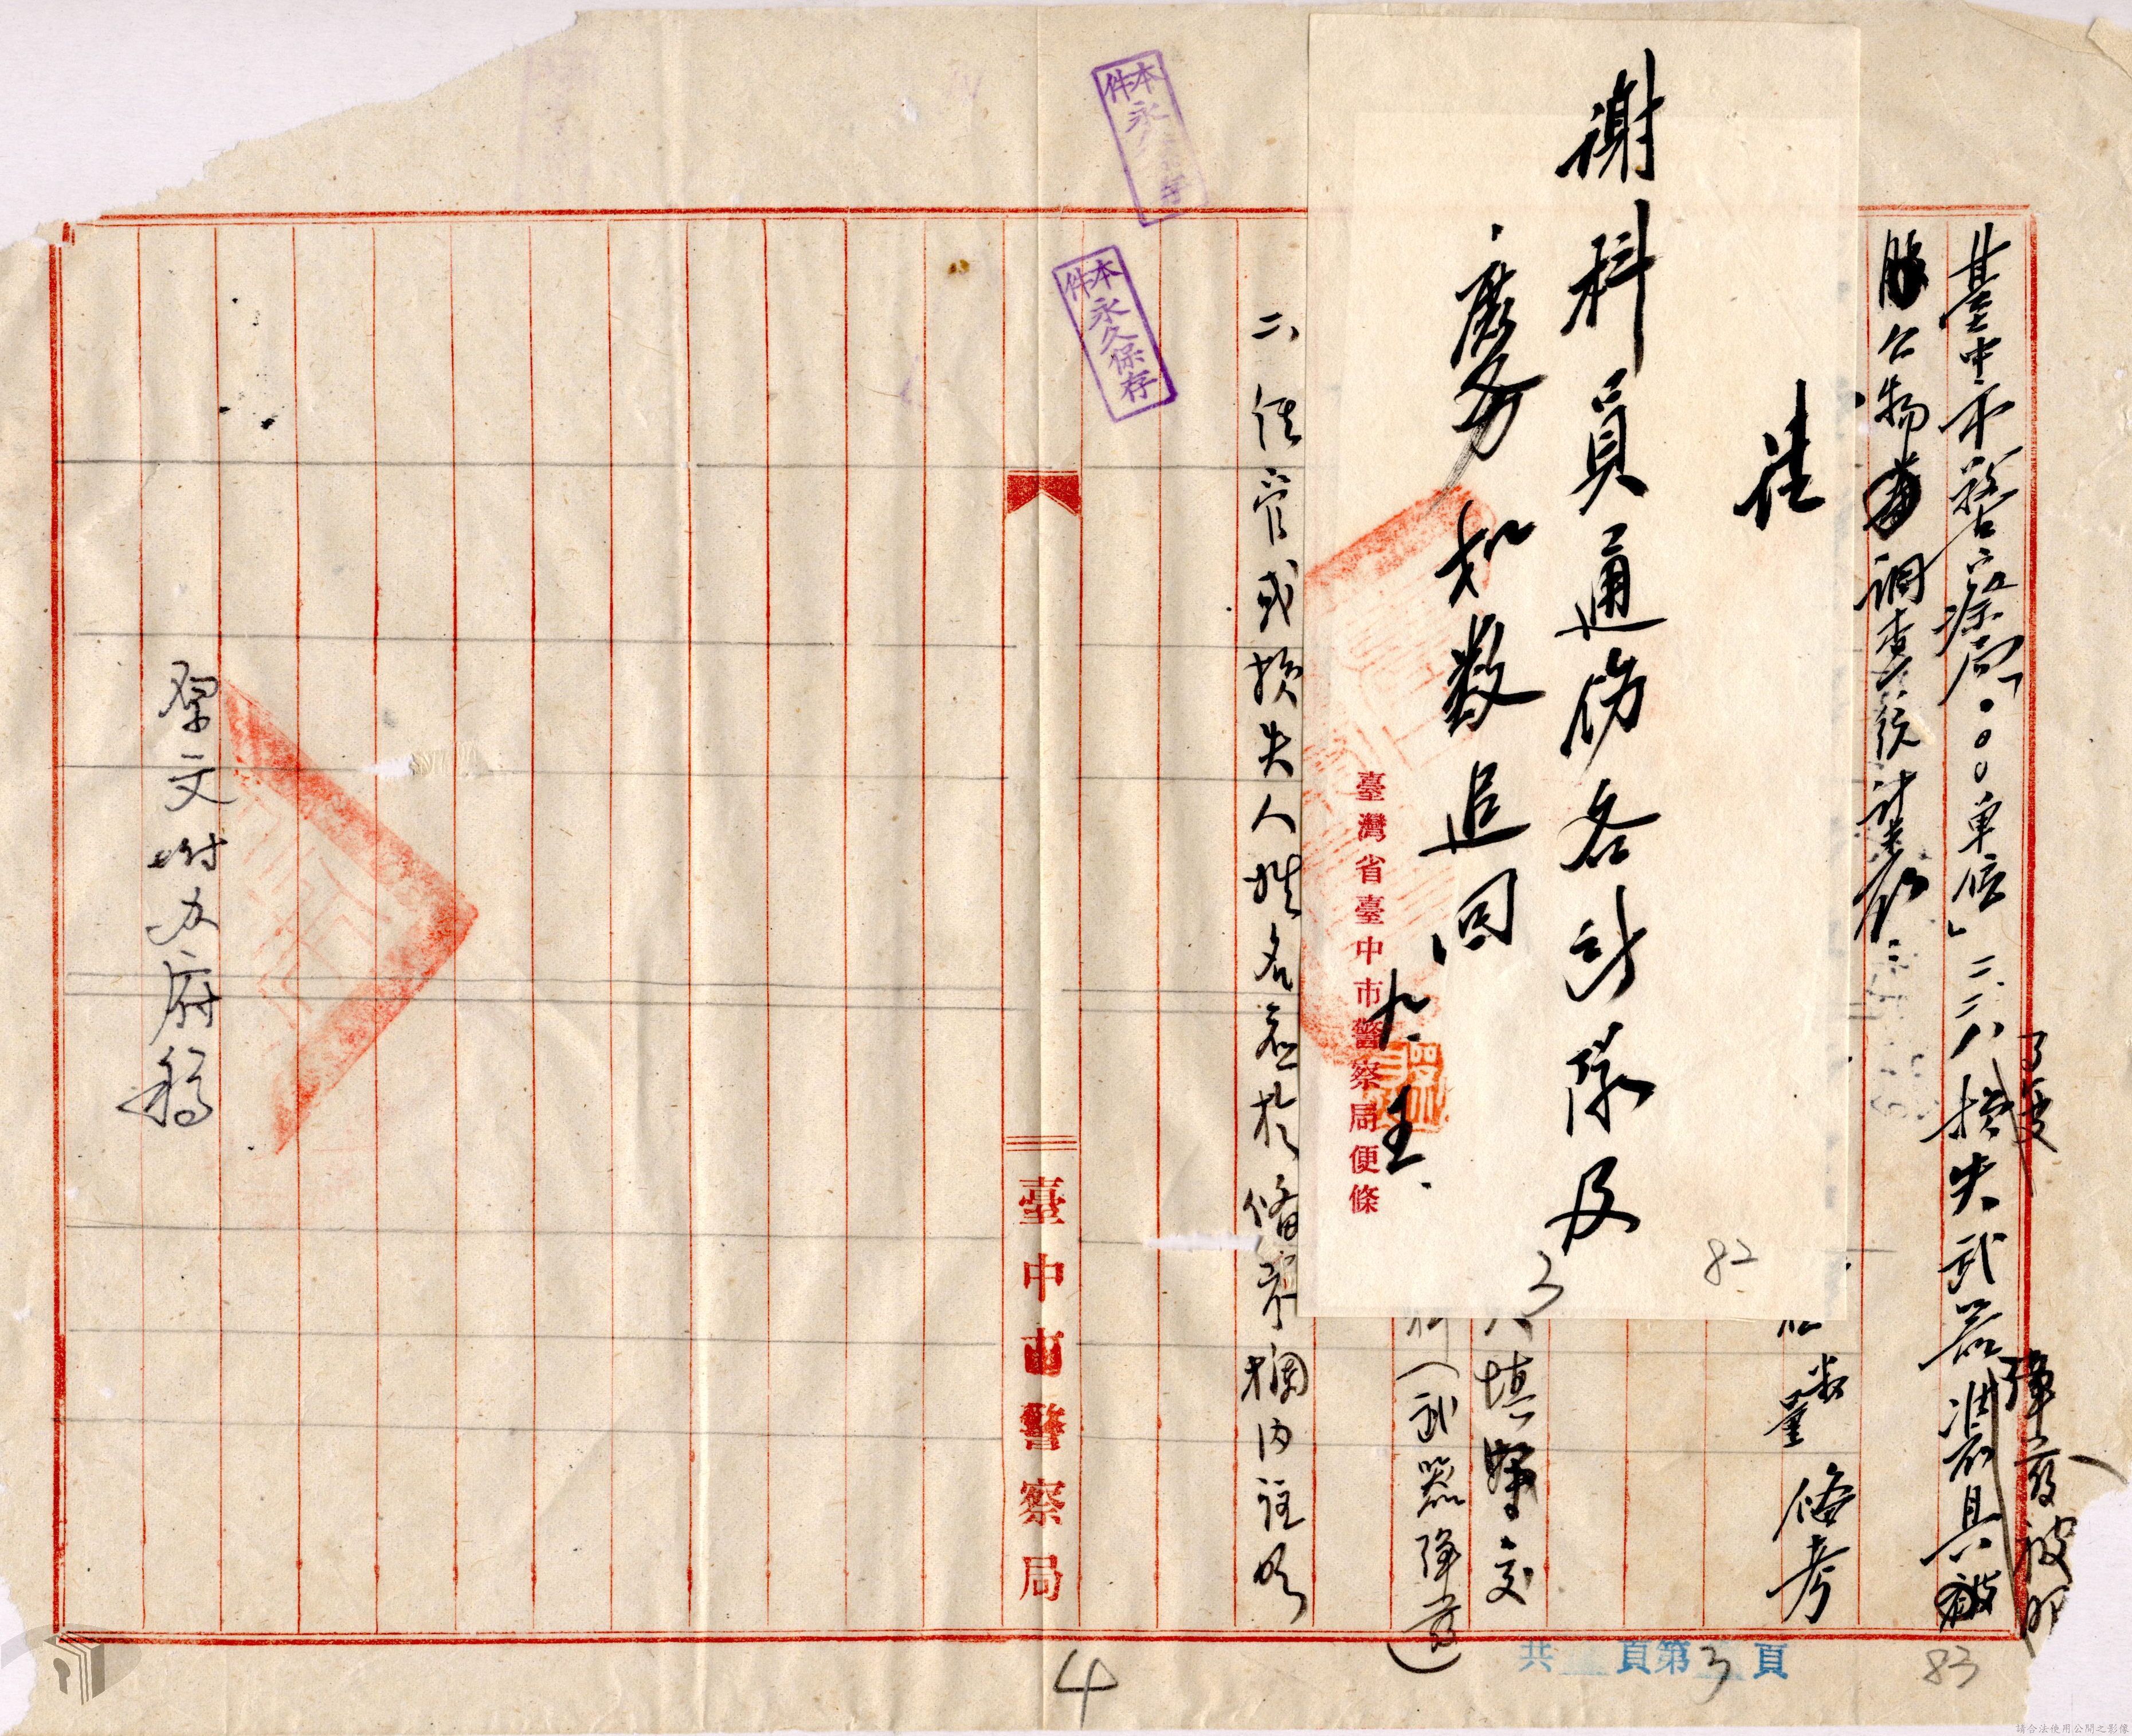 臺中市警察局「〇〇〇單位」二二八損失武器裝具被
彈葯被服
服公物調查統計表
數量
備考
請
謝科員通飭各分隊及
庶務如數追回
九.
王
臺灣省臺中市警察局便條
3
82
填
交
(武器彈葯)
二、保管或損失人姓名應於備考欄內註明
本件永久保存
本件永久保存
臺中市警察局
附
府稿
共
頁第3頁
83
4
請合法使用公開之影像